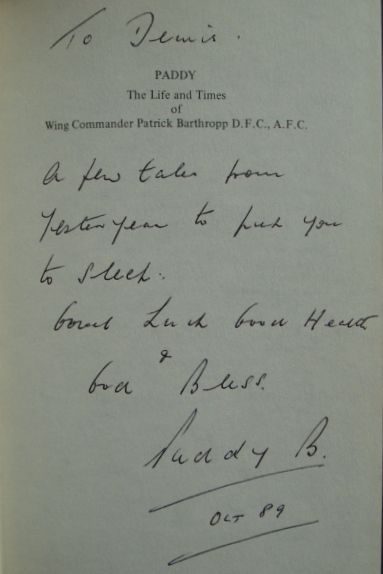 To Denis.
PADDY
The Life and Times
of
Wing Commander Patrick Barthropp D.F.C., A.F.C.
A few tales from
Yesteryear to put you
to sleep.
Good Luck Good Health
&
God Bless.
Paddy B.
OCT 89